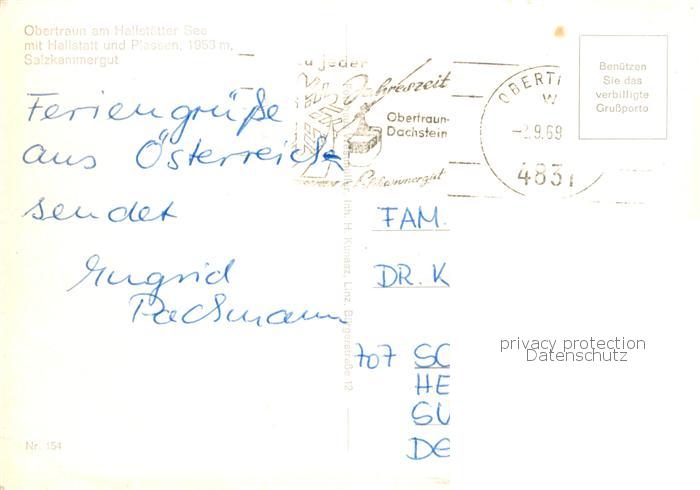 Obertraun am Hallstätter See
mit Hallstatt und Plassen, 1953 m,
Salzkammergut
Feriengrüße
aus Österreich
sendet
Ingrid
Nr. 154
zu jeder
Jahreszeit
Obertraun-
Dachstein
Salzkammergut
OBERT
-2.9.69
4831
Benützen
Sie das
verbilligte
Grußporto
Inh. H. Kunasz, Linz, Bürgerstraße 12
FAM.
DR. K
707 SC
HE
SU
DE
privacy protection
Datenschutz